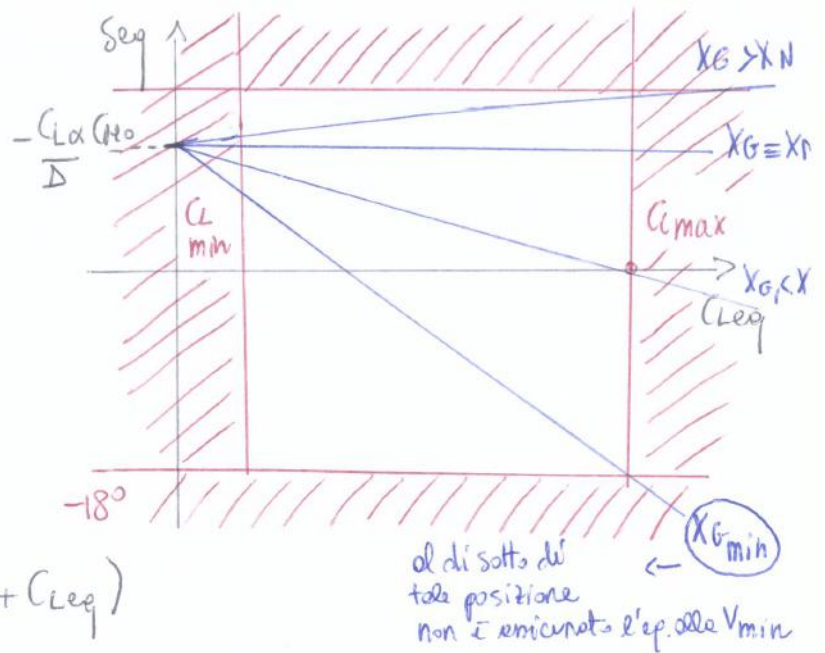 δeq
XG > XN
- CLα CM0
D
XG ≡ XN
CL
min
CLmax
XG < X
CLeq
-18°
XG min
+ CLeq )
al di sotto di
tale posizione
non è assicurato l'eq. alla Vmin